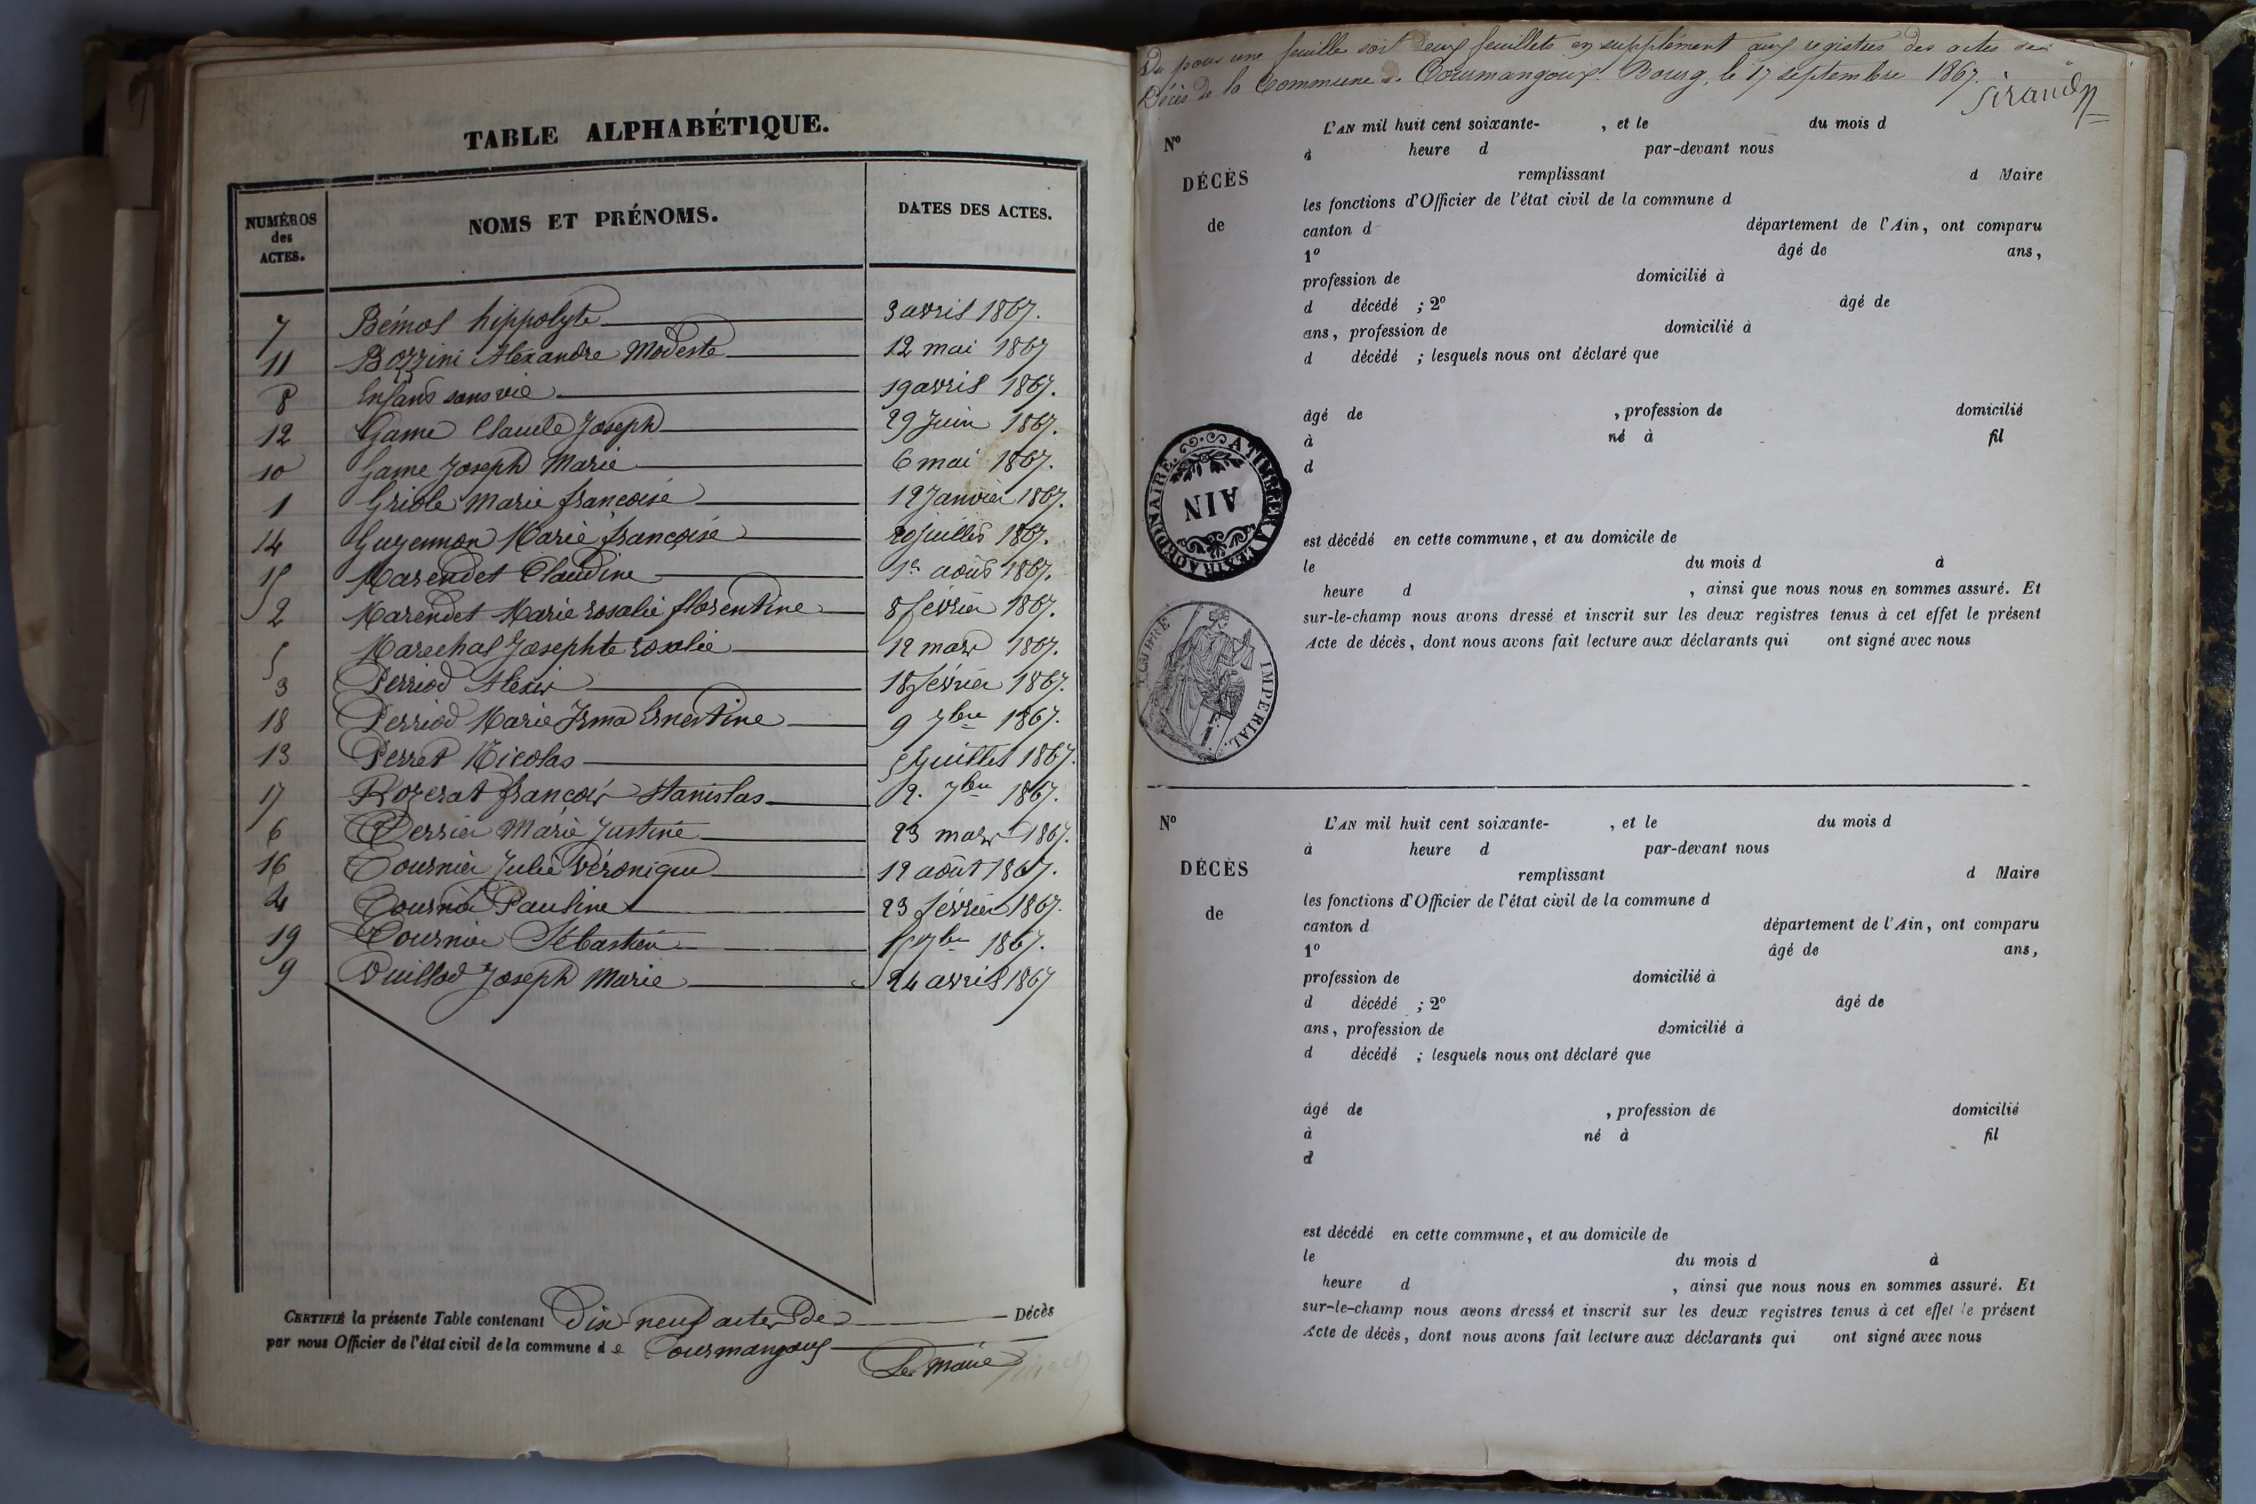 TABLE ALPHABÉTIQUE.
NUMÉROS des ACTES.
NOMS ET PRÉNOMS.
DATES DES ACTES.
7 Bémol hippolyte 3 avril 1867.
11 Bozzini Alexandre Modeste 12 mai 1867
8 Enfant sans vie 19 avril 1867.
12 Game Claude Joseph 29 Juin 1867.
10 Game Joseph Marie 6 mai 1867.
1 Griole Marie françoise 12 Janvier 1867.
14 Guyennon Marie françoise 20 Juillet 1867.
15 Marendet Claudine 1er août 1867.
2 Marendet Marie rosalie florentine 8 février 1867.
5 Marechal Josephte rosalie 12 mars 1867.
3 Perriod Alexis 18 février 1867.
18 Perriod Marie Irma Ernestine 9 7bre 1867.
13 Perret Nicolas 5 Juillet 1867.
17 Rozerat françois Stanislas 2. 7bre 1867.
6 Perrier Marie Justine 23 mars 1867.
16 Tournier Julie Véronique 12 août 1867.
4 Tournier Pauline 23 février 1867.
19 Tournier Sébastien 1867.
9 Vuillod Joseph Marie 24 avril 1867
CERTIFIÉ la présente Table contenant Dix-neuf actes De Décès
par nous Officier de l'état civil de la commune de Courmangoux
Le Maire
Vu pour une feuille soit deux feuillets en supplément aux registres des actes de
Décès de la Commune de Courmangoux. Bourg, le 17 septembre 1867.
Sirand
L'AN mil huit cent soixante- , et le du mois d
N°
à heure d par-devant nous
DÉCÈS
remplissant d Maire
les fonctions d'Officier de l'état civil de la commune d
de
canton d département de l'Ain, ont comparu
1° âgé de ans,
profession de domicilié à
d décédé ; 2° âgé de
ans, profession de domicilié à
d décédé ; lesquels nous ont déclaré que
âgé de , profession de domicilié
à né à fil
d
ATELIER EXTRAORDINAIRE.
AIN
est décédé en cette commune, et au domicile de
le du mois d à
heure d , ainsi que nous nous en sommes assuré. Et
sur-le-champ nous avons dressé et inscrit sur les deux registres tenus à cet effet le présent
Acte de décès, dont nous avons fait lecture aux déclarants qui ont signé avec nous
TIMBRE IMPERIAL.
N°
L'AN mil huit cent soixante- , et le du mois d
à heure d par-devant nous
DÉCÈS
remplissant d Maire
les fonctions d'Officier de l'état civil de la commune d
de
canton d département de l'Ain, ont comparu
1° âgé de ans,
profession de domicilié à
d décédé ; 2° âgé de
ans, profession de domicilié à
d décédé ; lesquels nous ont déclaré que
âgé de , profession de domicilié
à né à fil
d
est décédé en cette commune, et au domicile de
le du mois d à
heure d , ainsi que nous nous en sommes assuré. Et
sur-le-champ nous avons dressé et inscrit sur les deux registres tenus à cet effet le présent
Acte de décès, dont nous avons fait lecture aux déclarants qui ont signé avec nous